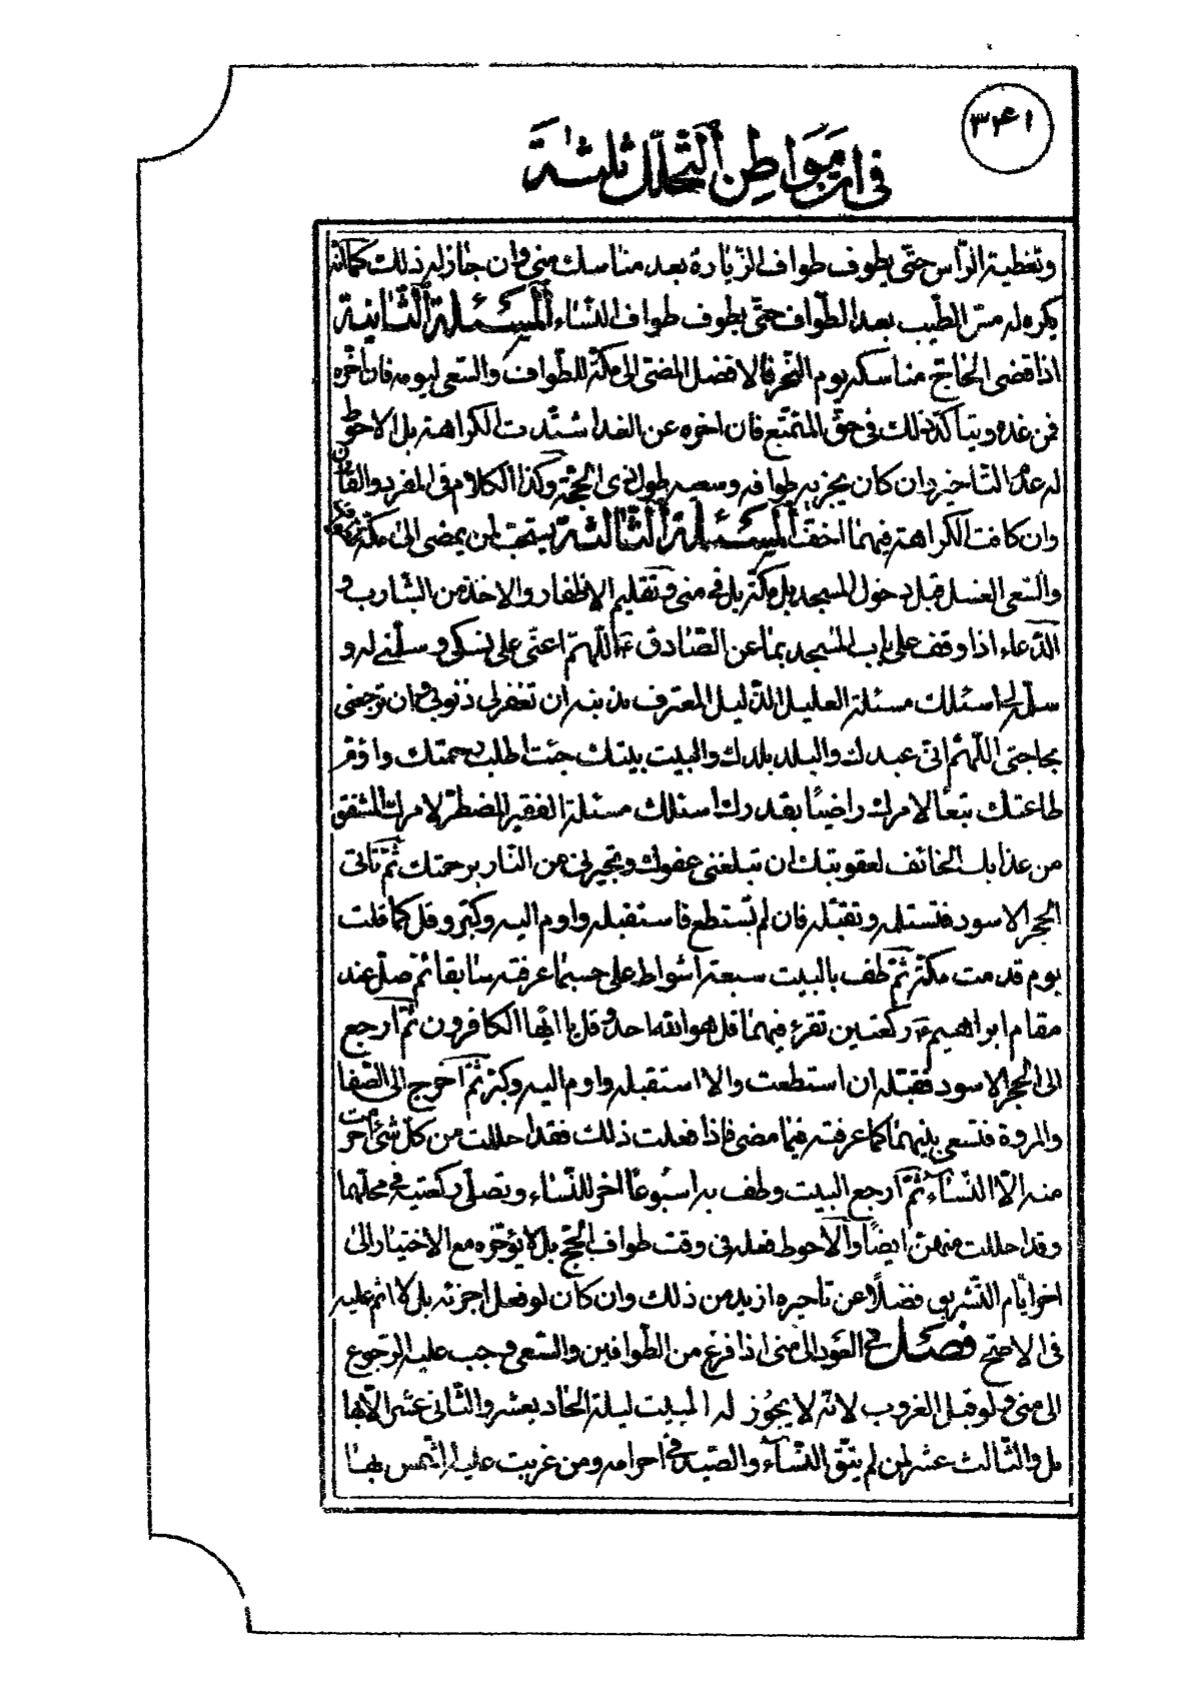 ٣٤١
فى ان مواطن التحلّل ثلثة
وتغطية الرّاس حتى يطوف طواف الزّيارة بعد مناسك منى وان جاز له ذلك كما انّه
يكره له مسّ الطّيب بعد الطّواف حتّى يطوف طواف النّساء المسئلة الثّانية
اذا قضى الحاجّ مناسكه يوم النّحر فالافضل المضىّ الى مكّة للطّواف والسّعى ليومه فان اخّره
فمن غده ويتأكّد ذلك فى حقّ المتمتّع فان اخره عن الغد اشتدّت الكراهة بل الاحوط
له عدم التّاخير وان كان يجزيه طوافه وسعيه طول ذى الحجّة وكذا الكلام فى المفرد والقارن
وان كانت الكراهة فيهما اخفّ المسئلة الثّالثة يستحبّ لمن يمضى الى مكّة للطواف
والسّعى الغسل قبل دخول المسجد بل مكّة بل فى منى وتقليم الاظفار والاخذ من الشّارب و
الدّعاء اذا وقف على باب المسجد بما عن الصّادق ع اللّهمّ اعنّى على نسكى وسلّمنى له و
سلّمه لى اسئلك مسئلة العليل الذّليل المعترف بذنبه ان تغفر لى ذنوبى وان ترجعنى
بحاجتى اللّهمّ انّى عبدك والبلد بلدك والبيت بيتك جئت اطلب رحمتك واؤمّ
طاعتك متّبعًا لامرك راضيًا بقدرك اسئلك مسئلة الفقير المضطرّ لامرك المشفق
من عذابك الخائف لعقوبتك ان تبلغنى عفوك وتجيرنى من النّار برحمتك ثمّ تاتى
الحجر الاسود فتستلمه وتقبّله فان لم تستطع فاستقبله واوم اليه وكبّر وقل كما قلت
يوم قدمت مكّة ثمّ طف بالبيت سبعة اشواط على حسبما عرفته سابقا ثمّ صلّ عند
مقام ابراهيم ع ركعتين تقرء فيهما قل هو الله احد وقل يا ايّها الكافرون ثمّ ارجع
الى الحجر الاسود فقبّله ان استطعت والا استقبله واوم اليه وكبّر ثمّ اخرج الى الصّفا
والمروة فتسعى بينهما كما عرفته فيما مضى فاذا فعلت ذلك فقد احللت من كلّ شئ احرمت
منه الّا النّساء ثمّ ارجع البيت وطف به اسبوعًا اخر للنّساء وتصلّى ركعتيه فى محلّهما
وقد احللت منهنّ ايضًا والاحوط فعله فى وقت طواف الحجّ بل لا يؤخّره مع الاختيار الى
اخر ايّام التّشريق فضلًا عن تاخيره ازيد من ذلك وان كان لو فعل اجزئه بل لا اثم عليه
فى الاصحّ فصل فى العود الى منى اذا فرغ من الطّوافين والسّعى وجب عليه الرّجوع
الى منى ولو قبل الغروب لانّه لا يجوز له المبيت ليلة الحاديعشر والثّانى عشر الّا بها
بل والثّالث عشر لمن لم يتّق النّساء والصّيد فى احرامه ومن غربت عليه الشّمس بها